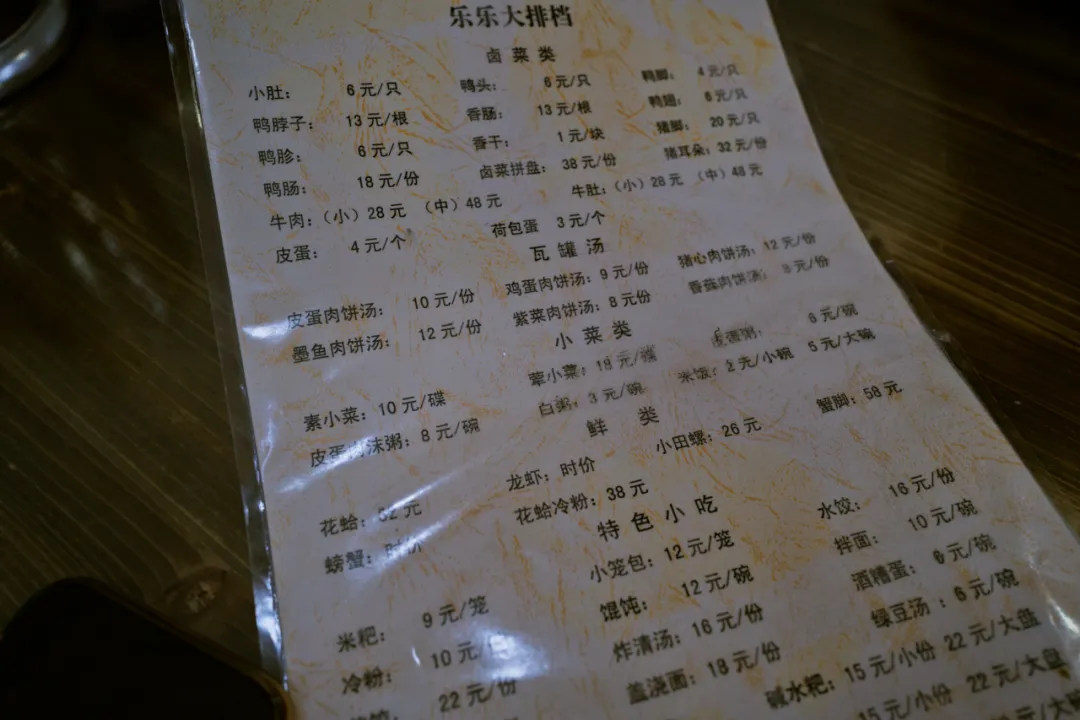 乐乐大排档
卤菜类
小肚: 6元/只 鸭头: 6元/只 鸭脚: 4元/只
鸭脖子: 13元/根 香肠: 13元/根 鸭翅: 6元/只
鸭胗: 6元/只 香干: 1元/块 猪脚: 20元/只
鸭肠: 18元/份 卤菜拼盘: 38元/份 猪耳朵: 32元/份
牛肉:(小)28元 (中)48元 牛肚:(小)28元 (中)48元
皮蛋: 4元/个 荷包蛋 3元/个
瓦罐汤
皮蛋肉饼汤: 10元/份 鸡蛋肉饼汤: 9元/份 猪心肉饼汤: 12元/份
墨鱼肉饼汤: 12元/份 紫菜肉饼汤: 8元/份 香菇肉饼汤: 8元/份
小菜类
素小菜: 10元/碟 荤小菜: 18元/碟 6元/碗
皮蛋肉沫粥: 8元/碗 白粥: 3元/碗 米饭: 2元/小碗 5元/大碗
鲜类
花蛤: 32元 龙虾: 时价 小田螺: 26元 蟹脚: 58元
螃蟹: 时价 花蛤冷粉: 38元
特色小吃
米粑: 9元/笼 小笼包: 12元/笼 水饺: 16元/份
冷粉: 10元/ 馄饨: 12元/碗 拌面: 10元/碗
22元/份 炸清汤: 16元/份 酒糟蛋: 6元/碗
盖浇面: 18元/份 绿豆汤: 6元/碗
碱水粑: 15元/小份 22元/大盘
15元/小份 22元/大盘